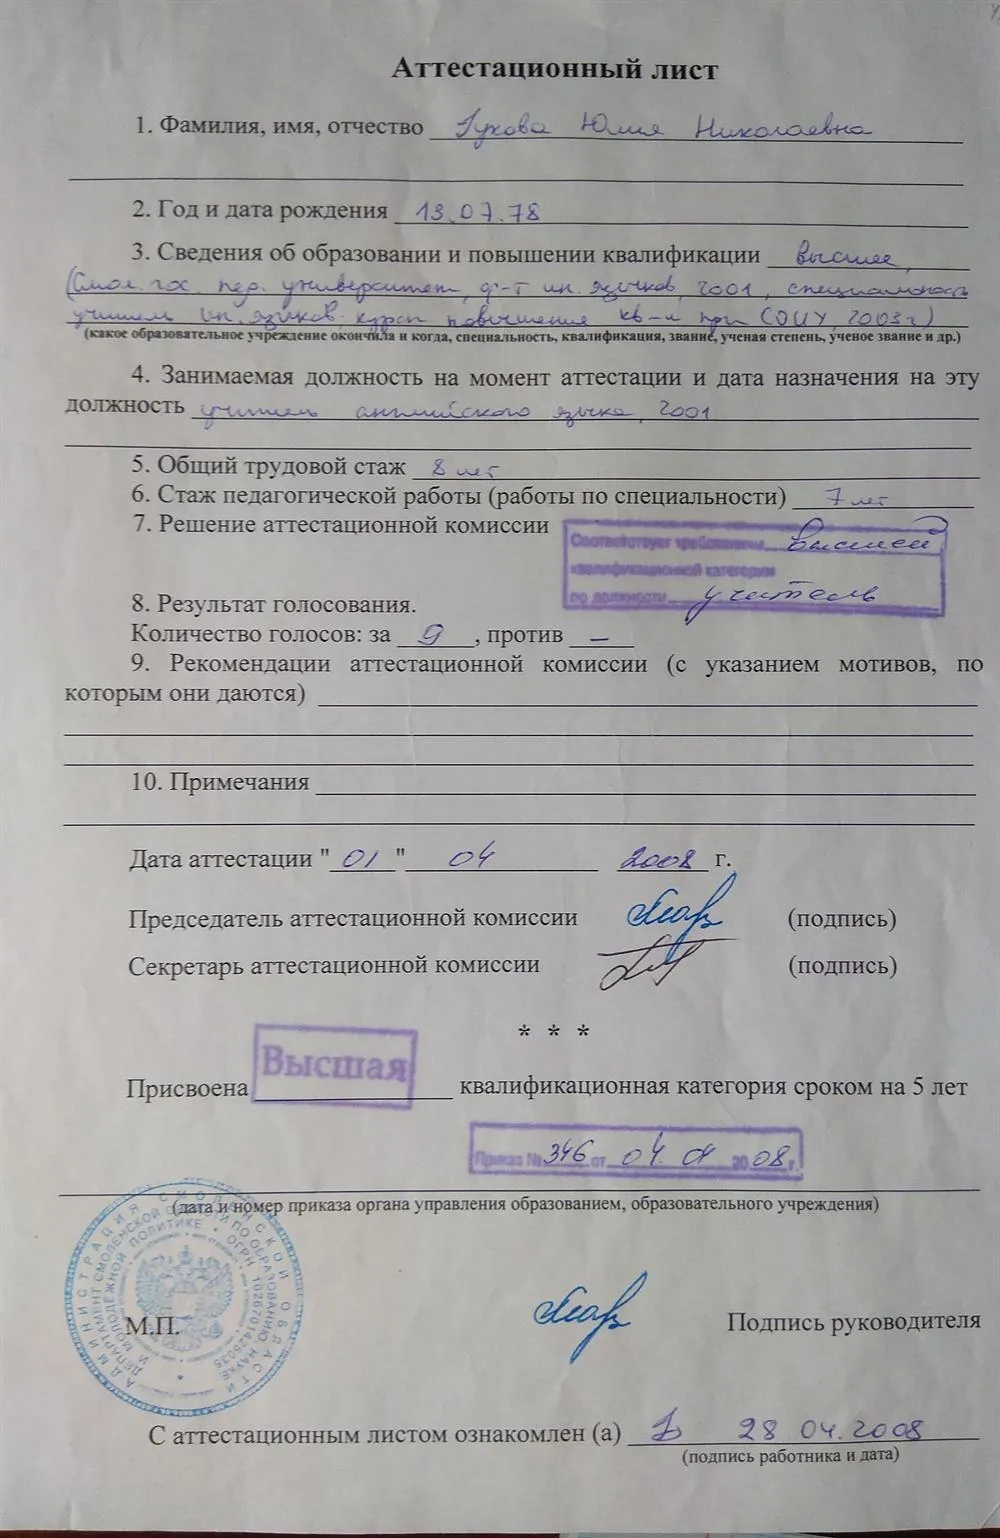 Аттестационный лист
1. Фамилия, имя, отчество Юлия Николаевна
2. Год и дата рождения 13.07.78
3. Сведения об образовании и повышении квалификации высшее,
(Смол. гос. пед. университет, ф-т ин. языков, 2001, специальность
учитель ин. языков; курсы повышения кв-и при СОИУ, 2003 г)
(какое образовательное учреждение окончила и когда, специальность, квалификация, звание, ученая степень, ученое звание и др.)
4. Занимаемая должность на момент аттестации и дата назначения на эту
должность учитель английского языка, 2001
5. Общий трудовой стаж 8 лет
6. Стаж педагогической работы (работы по специальности) 7 лет
7. Решение аттестационной комиссии
Соответствует требованиям высшей
квалификационной категории
по должности учитель
8. Результат голосования.
Количество голосов: за 9, против –
9. Рекомендации аттестационной комиссии (с указанием мотивов, по
которым они даются)
10. Примечания
Дата аттестации "01" 04 2008 г.
Председатель аттестационной комиссии (подпись)
Секретарь аттестационной комиссии (подпись)
* * *
Присвоена Высшая квалификационная категория сроком на 5 лет
Приказ № 346 от 04.04 2008 г.
(дата и номер приказа органа управления образованием, образовательного учреждения)
АДМИНИСТРАЦИЯ СМОЛЕНСКОЙ ОБЛАСТИ
ДЕПАРТАМЕНТ СМОЛЕНСКОЙ ОБЛАСТИ ПО ОБРАЗОВАНИЮ, НАУКЕ
И МОЛОДЕЖНОЙ ПОЛИТИКЕ * ОГРН 1026701425035
М.П.
Подпись руководителя
С аттестационным листом ознакомлен (а) 28.04.2008
(подпись работника и дата)